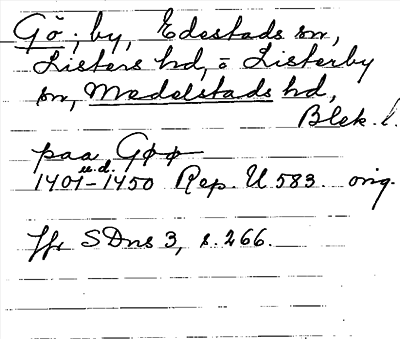 Gö, by, Edestads sn,
Listers hd, = Listerby
sn, Medelstads hd,
Blek. l.
paa Gøø
u.d.
1401-1450 Rep. U 583. orig.
Jfr SDns 3, s. 266.